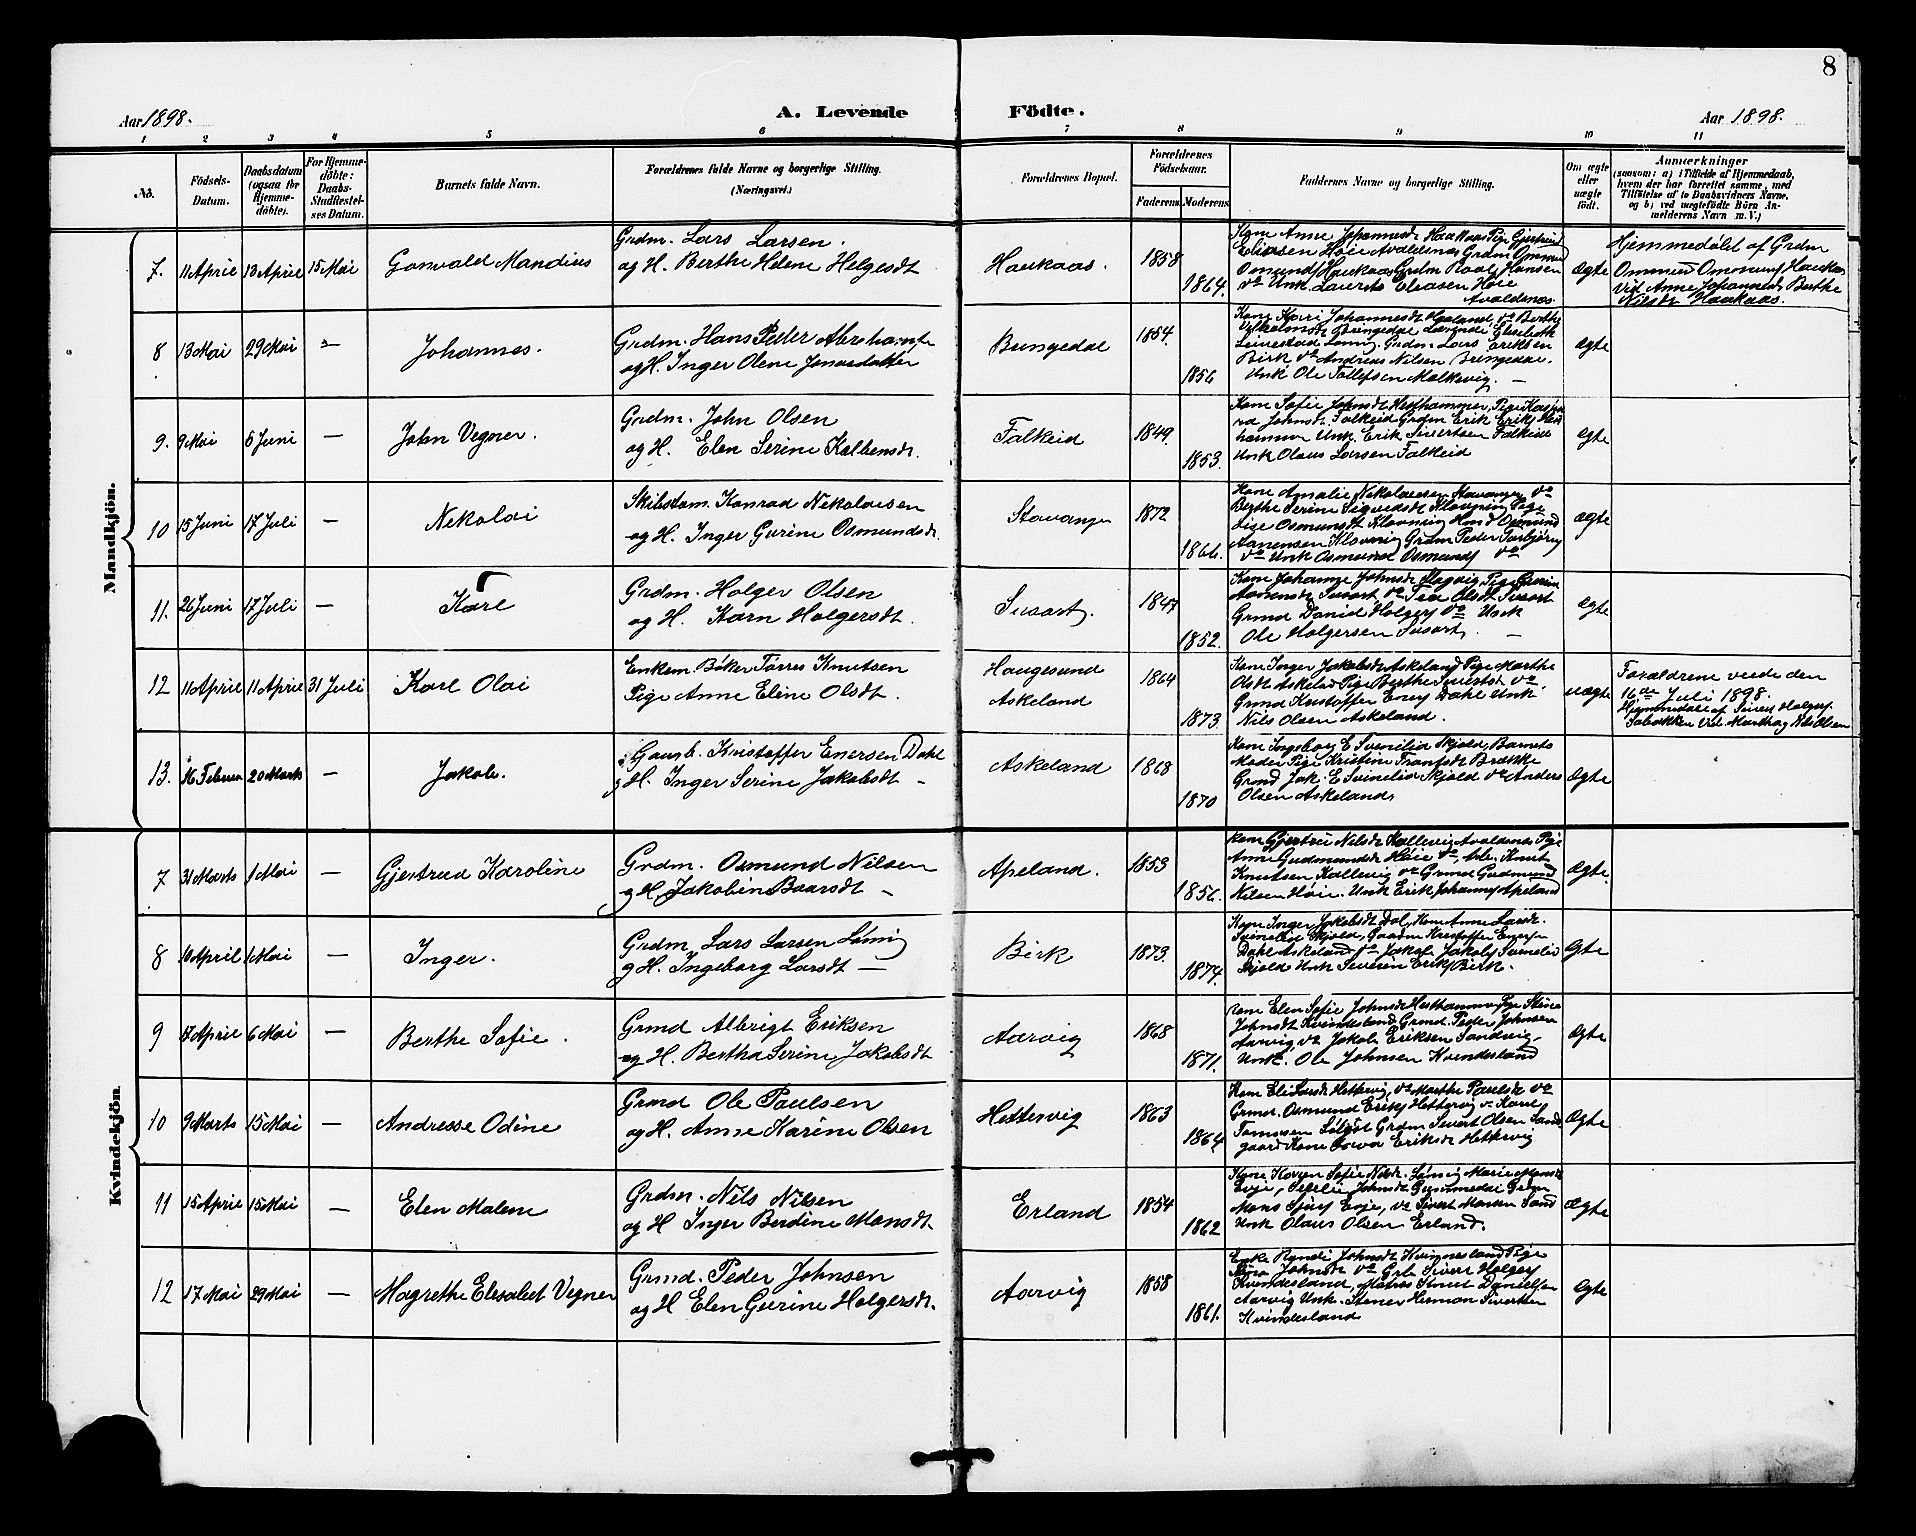 8
Aar 1898.
A. Levende Födte.
Aar 1898.
1 2 3 4 5 6 7 8 9 10 11
No.
Födsels-Datum.
Daabsdatum (ogsaa for Hjemmedöbte).
For Hjemmedöbte: Daabs-Stadfæstelses Datum.
Barnets fulde Navn.
Forældrenes fulde Navne og borgerlige Stilling. (Næringsvei.)
Forældrenes Bopæl.
Forældrenes Födselsaar.
Faderens Moderens
Faddernes Navne og borgerlige Stilling.
Om ægte eller uægte födt.
Anmærkninger (saasom: a) i Tilfælde af Hjemmedaab, hvem der har forrettet samme, med Tilföielse af to Daabsvidners Navne, og b) ved uægtefödte Börn Anmelderens Navn m. V.)
Mandkjön.
7. 11 April 13 April 15 Mai
Gonvald Mandius
Grdm. Lars Larsen.
og H. Berthe Helene Helgesdt
Haukaas.
1858
1864.
Kone Anne Johannesdt Haakaas Pige Gjertrud
Eliasen Høie Avaldsnes Grdm Ommund
Osmunds Haukaas Grdm Hansen
do Unk. Laurits Eliasen Høie
Avaldsnes
Ægte
Hjemmedøbt af Grdm
Ommund Omonsen Haukaas
Vid Anne Johannesdt Berthe
Nilsdt Haukaas.
8 13 Mai 29 Mai
Johannes.
Grdm. Hans Peder Abrahams
og H. Inger Olene Jonasdatter
Bringedal
1854.
1856
Kone Kari Johannesdt do Berthe
Bringedal Elisebeth
Grdm Lars Eriksen
Birk do Andreas Nilsen Bringedal.
Unk Ole Tollefsen Molkevig. —
Ægte
9. 9 Mai 5 Juni —
John Vegner.
Grdm. John Olsen
og H. Elen Serine Kolbensdt.
Falkeid
1849.
1853.
Kone Sofie Johnsdt Hesthammer, Pige
Johnsdt Falkeid Grdm Erik Eriks
hammer Unk. Erik Sivertsen Falkeid
Unk Olaus Larsen Falkeid
Ægte
10 15 Juni 17 Juli —
Nekolai
Skibstøm. Konrad Nekolaisen
og H. Inger Gurine Osmundsdt.
Stavanger
1872
1866.
Kone Amalie Nikolaisen Stavanger do
Berthe Serine Sigvedsdt Klovning Pige
Lise Osmundsdt Klovning Osmund
Aanensen Klovning Grdm Peder Torbjørn
do Unk Osmund Osmunds do
Ægte
11. 26 Juni 17 Juli —
Karl
Grdm. Holger Olsen
og H. Karn Holgersdt.
Susort.
1847
1852.
Kone Johanne Johnsdt Slogvig, Pige
Susort, do Olsdt Susort
Grmd Daniel Holgers do Unk
Ole Holgersen Susort. —
Ægte
12 11 April 11 April 31 Juli
Karl Olai
Enkem. Bøker Tørres Knutsen
Pige Anne Eline Olsdt.
Haugesund
Askeland
1864
1873.
Kone Inger Jakobsdt Askeland Pige Marthe
Olsdt Askeland Pige Berthe Sivertsdt do
Grmd Kristoffer Eners Dahl Unk
Nils Olsen Askeland.
uægte
Forældrene viede den
16de Juli 1898.
Hjemmedøbt af Sivert Holgers.
Vid. Martha Nils Olsen
13. 16 Februar 20 Marts —
Jakob.
Gaarb. Kristoffer Enersen Dahl
g H. Inger Serine Jakobsdt —
Askeland
1868
1870
Kone Ingeborg E Svenelid Skjold, Barnets
Moder Pige Kristine
Grmd Jak. E Svinelid Skjold do Anders
Olsen Askeland.
Ægte
Kvindekjön
7 31 Marts 1 Mai —
Gjertrud Karoline
Grdm. Osmund Nilsen
g H. Jakobine Baarsdt —
Apeland.
1853
1856.
Kone Gjertrud Nilsdt Kallevig Avaldsnes Pige
Anne Gudmundsdt Høie do, Knut
Knutsen Kallevig do Grmd Gudmund
Nilsen Høie. Unk Erik Johannes Apeland
Ægte.
8 10 April 1 Mai —
Inger.
Grdm. Lars Larsen Lønnig
g H. Ingeborg Larsdt —
Birk
1873.
1874.
Kone Inger Jakobsdt Dal, Kone Anne Larsdt.
Svinelid Skjold, Kristoffer Eners
Dahl Askeland do Jakob Jakobs Svinelid
Skjold Unk Severin Eriks Birk.
Ægte
9 5 April 6 Mai —
Berthe Sofie.
Grmd Albrigt Eriksen
og H. Bertha Serine Jakobsdt
Aarvig
1868
1871.
Kone Elen Sofie Johnsdt Hesthammer Pige Stine
Johnsdt Kvindesland Grmd. Peder Johnsen
Aarvig do Jakob Eriksen Sandvig,
Unk. Ole Johnsen Kvindesland
Ægte
10 9 Marts 15 Mai —
Andresse Odine
Grmd Ole Paulsen
og H. Anne Karine Olsen
Hettervig
1863
1864
Kone Eli Larsdt Hettervig, do Marthe Paulsdt do
Grmd. Osmund Eriks Hettervig do Karl
Grdm Sivert Olsen Sand
gaard Kone Eriksdt Hettervig
Ægte
11 15 April 15 Mai —
Elen Malene
Grdm. Nils Nilsen
og H Inger Berdine Monsdt
Erland
1854
1862
Kone Karen Sofie Nilsdt. Lønnig Marie Monsdt
Evje, Johnsdt Gummedal Grdm
Mons Evje, do Sivert
Unk Olaus Olsen Erland.
Ægte
12 17 Mai 29 Mai —
Magrethe Elesabet Vegner
Grmd. Peder Johnsen
og H Elen Gurine Holgersdt.
Aarvig
1858
1861.
Enke Johnsdt Kvinnesland Pige
Johnsdt do Sivert Holgers
Kvindesland, Matros Danielsen
Aarvig Unk. Stener Herman Sivertsen
Kvindesland
Ægte